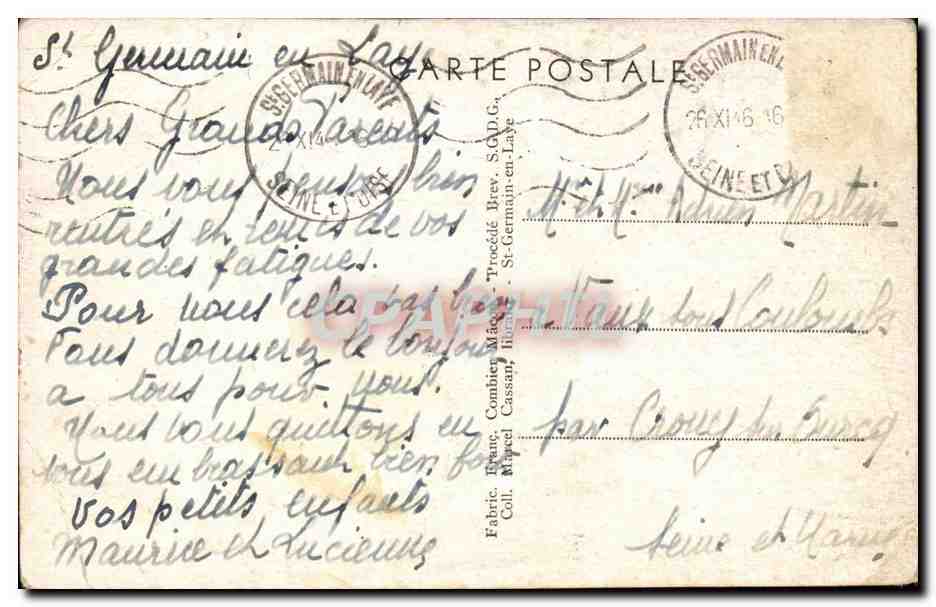 St Germain en Laye
CARTE POSTALE
St GERMAIN EN LAYE
SEINE ET OISE
St GERMAIN EN L
26 XI 46 16
SEINE ET
Chers Grands Parents
Nous vous pensons bien
rentrés et remis de vos
grandes fatigues.
Pour nous cela va
Vous donnerez le bonjour
a tous pour nous.
Nous vous quittons en
vous embrassant bien fort
Vos petits enfants
Maurice et Lucienne
Fabric. Franç. Combier Mâcon - "Procédé Brev. S.G.D.G.
Coll. Marcel Cassan, libraire - St-Germain-en-Laye
Mr et Mme Martin
Vaux sous Coulombs
par Crouy sur Ourcq
Seine et Marne
CPAPHIL